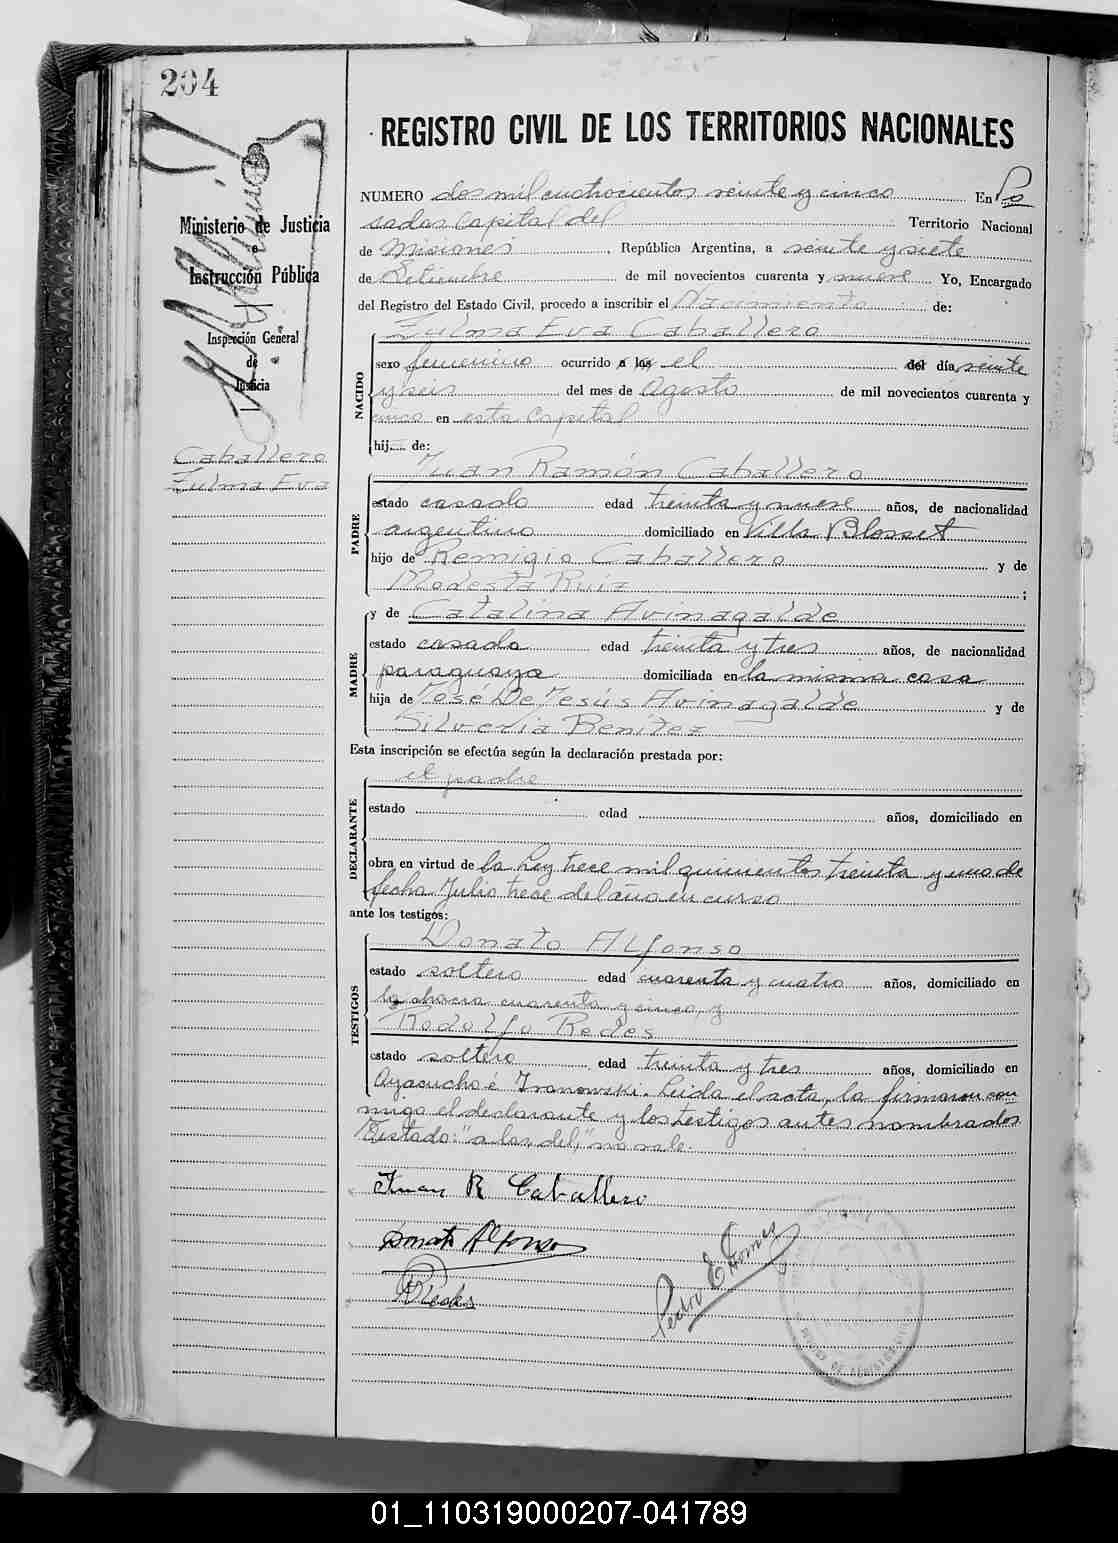 204
REGISTRO CIVIL DE LOS TERRITORIOS NACIONALES
Ministerio de Justicia
e
Instrucción Pública
Inspección General
de
Justicia
Caballero
Zulma Eva
NUMERO dos mil cuatrocientos veinte y cinco En Po
sadas Capital del Territorio Nacional
de Misiones, República Argentina, a veinte y siete
de Setiembre de mil novecientos cuarenta y nueve Yo, Encargado
del Registro del Estado Civil, procedo a inscribir el Nacimiento de:
Zulma Eva Caballero
NACIDO
sexo femenino ocurrido a las el del día veinte
y seis del mes de Agosto de mil novecientos cuarenta y
cinco en esta Capital
hij de:
Juan Ramón Caballero
PADRE
estado casado edad treinta y nueve años, de nacionalidad
argentino domiciliado en Villa Blosset
hijo de Remigio Caballero y de
Modesta Ruiz ;
y de Catalina Avinagalde
MADRE
estado casada edad treinta y tres años, de nacionalidad
paraguaya domiciliada en la misma casa
hija de José De Jesús Avinagalde y de
Silveria Benítez
Esta inscripción se efectúa según la declaración prestada por:
el padre
DECLARANTE
estado edad años, domiciliado en
obra en virtud de la Ley trece mil quinientos treinta y uno de
fecha Julio trece del año en curso
ante los testigos:
Donato Alfonso
TESTIGOS
estado soltero edad cuarenta y cuatro años, domiciliado en
la chacra cuarenta y cinco, y
Rodolfo Redes
estado soltero edad treinta y tres años, domiciliado en
Ayacucho é Iranowski. Leida el acta, la firmaron con
migo el declarante y los testigos antes nombrados
Testado: "a las, del," no vale.
Juan R Caballero
Donato Alfonso
Pedro E Gomes
01_110319000207-041789